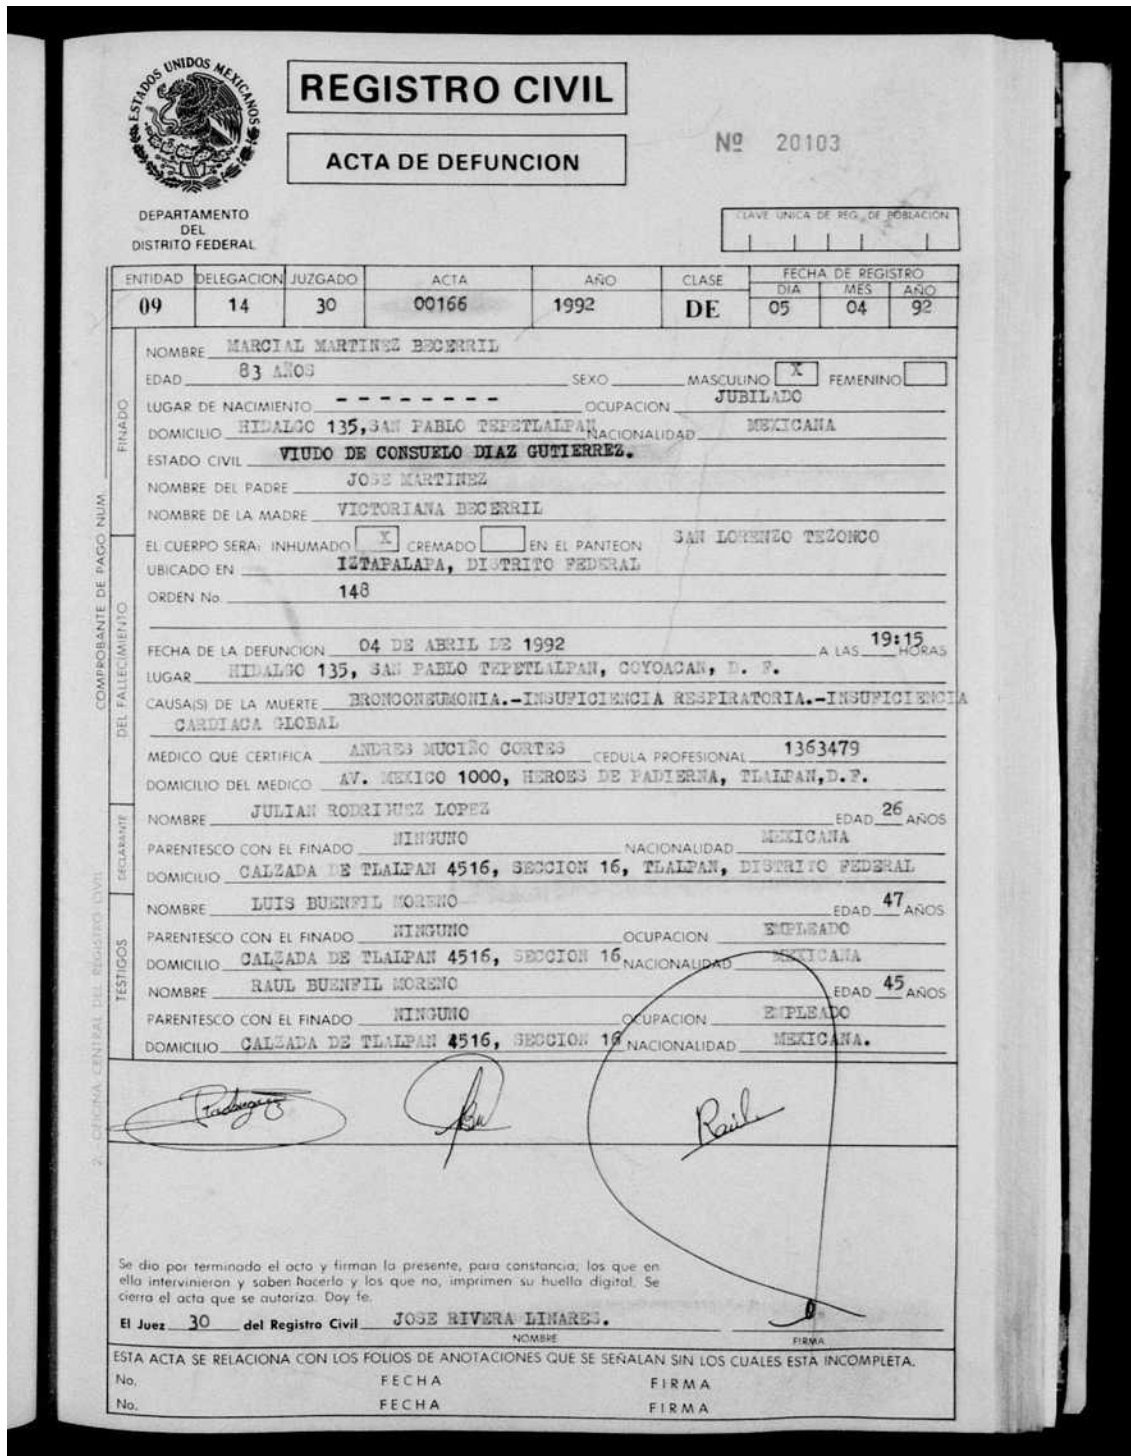 ESTADOS UNIDOS MEXICANOS
REGISTRO CIVIL
ACTA DE DEFUNCION
Nº 20103
DEPARTAMENTO
DEL
DISTRITO FEDERAL
CLAVE UNICA DE REG. DE POBLACION
ENTIDAD DELEGACION JUZGADO ACTA AÑO CLASE FECHA DE REGISTRO
DIA MES AÑO
09 14 30 00166 1992 DE 05 04 92
FINADO
NOMBRE MARCIAL MARTINEZ BECERRIL
EDAD 83 AÑOS SEXO MASCULINO X FEMENINO
LUGAR DE NACIMIENTO - - - - - - - - OCUPACION JUBILADO
DOMICILIO HIDALGO 135, SAN PABLO TEPETLALPAN NACIONALIDAD MEXICANA
ESTADO CIVIL VIUDO DE CONSUELO DIAZ GUTIERREZ.
NOMBRE DEL PADRE JOSE MARTINEZ
NOMBRE DE LA MADRE VICTORIANA BECERRIL
COMPROBANTE DE PAGO NUM.
DEL FALLECIMIENTO
EL CUERPO SERA: INHUMADO X CREMADO EN EL PANTEON SAN LORENZO TEZONCO
UBICADO EN IZTAPALAPA, DISTRITO FEDERAL
ORDEN No. 148
FECHA DE LA DEFUNCION 04 DE ABRIL DE 1992 A LAS 19:15 HORAS
LUGAR HIDALGO 135, SAN PABLO TEPETLALPAN, COYOACAN, D. F.
CAUSA(S) DE LA MUERTE BRONCONEUMONIA.-INSUFICIENCIA RESPIRATORIA.-INSUFICIENCIA
CARDIACA GLOBAL
MEDICO QUE CERTIFICA ANDRES MUCIÑO CORTES CEDULA PROFESIONAL 1363479
DOMICILIO DEL MEDICO AV. MEXICO 1000, HEROES DE PADIERNA, TLALPAN,D.F.
DECLARANTE
NOMBRE JULIAN RODRIGUEZ LOPEZ EDAD 26 AÑOS
PARENTESCO CON EL FINADO NINGUNO NACIONALIDAD MEXICANA
DOMICILIO CALZADA DE TLALPAN 4516, SECCION 16, TLALPAN, DISTRITO FEDERAL
TESTIGOS
NOMBRE LUIS BUENFIL MORENO EDAD 47 AÑOS
PARENTESCO CON EL FINADO NINGUNO OCUPACION EMPLEADO
DOMICILIO CALZADA DE TLALPAN 4516, SECCION 16 NACIONALIDAD MEXICANA
NOMBRE RAUL BUENFIL MORENO EDAD 45 AÑOS
PARENTESCO CON EL FINADO NINGUNO OCUPACION EMPLEADO
DOMICILIO CALZADA DE TLALPAN 4516, SECCION 16 NACIONALIDAD MEXICANA.
2- OFICINA CENTRAL DEL REGISTRO CIVIL
Rodriguez
Raúl
Se dio por terminado el acto y firman la presente, para constancia, los que en
ella intervinieron y saben hacerlo y los que no, imprimen su huella digital. Se
cierra el acta que se autoriza. Doy fe.
El Juez 30 del Registro Civil JOSE RIVERA LINARES.
NOMBRE FIRMA
ESTA ACTA SE RELACIONA CON LOS FOLIOS DE ANOTACIONES QUE SE SEÑALAN SIN LOS CUALES ESTA INCOMPLETA.
No. FECHA FIRMA
No. FECHA FIRMA